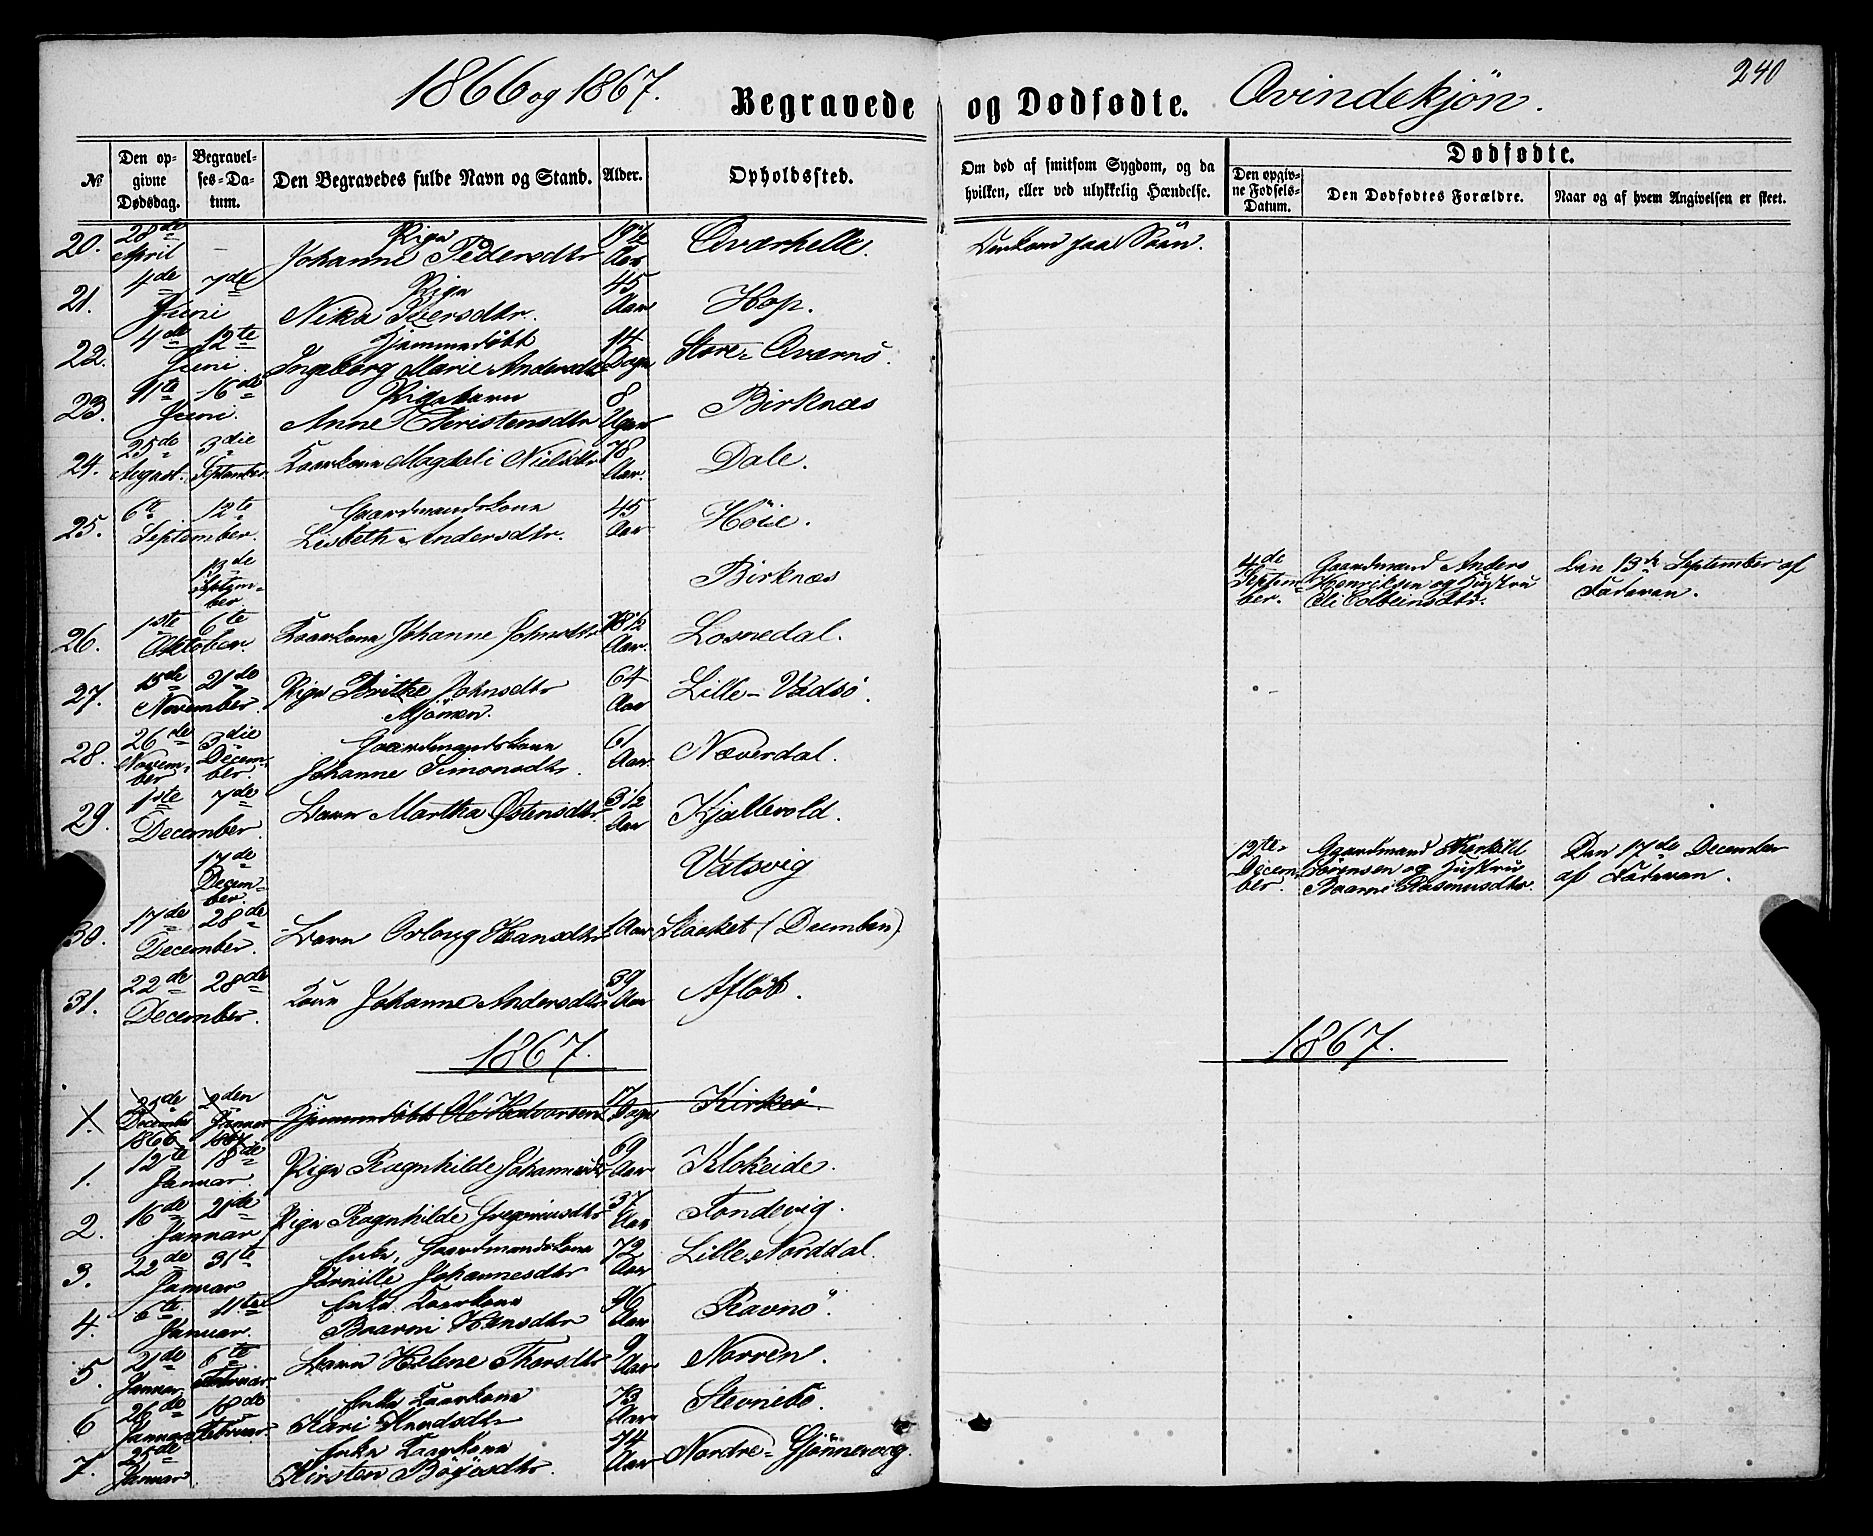 1866 og 1867.
Begravede og Dødfødte. Qvindekjøn.
240
№
Den opgivne Dødsdag.
Begravelses-Datum.
Den Begravedes fulde Navn og Stand.
Alder.
Opholdssted.
Om død af smitsom Sygdom, og da hvilken, eller ved ulykkelig Hændelse.
Dødfødte.
Den opgivne Fødsels-Datum.
Den Dødfødtes Forældre.
Naar og af hvem Angivelsen er skeet.
20. 28de April – Pige Johanne Pedersdtr Aar Qværhelle. paa Søen.
21. 4de 7de Juni Pige Nika Iversdtr. 45 Aar Hop.
22. 4de 12te Juni. Hjemmedøbt Ingeborg Marie Andersdtr 14 Dage Store-Qværnø.
23. 11te 16de Juni. Pigebarn Anne Christensdtr 8 Uger Birknæs
24. 25de August. 3die September. Kaarkone Magdali Nielsdtr 78 Aar. Dale.
25. 6te 12te September. Gaardmandskone Lisbeth Andersdtr. 45 Aar Høie.
13de September Birknæs 4de September. Gaardmand Anders Henriksen og Hustru Eli Colbeinsdtr. Den 13de September af Faderen.
26. 1ste 6te Oktober. Kaarkone Johanne Johnsdtr Aar. Losnedal.
27. 15de 21de November. Pige Brithe Johnsdtr Mjømen. 64 Aar Lille-Vadsø.
28. 26de November 3die December Gaardmandskone Johanne Simonsdtr. 61 Aar. Næverdal.
29. 1ste 7de December. Barn Martha Østensdtr 3½ Aar Kjellevold.
17de December. Vatsvig 12te December. Gaardmand Thorkild Sørensen og Hustru Baarni Rasmusdtr. Den 17de December af Faderen.
30. 17de 28de December. Barn Orloug Hansdtr 1 Aar Staaket (Dumben)
31. 22de 28de December. Kone Johanne Andersdtr 39 Aar Afløt.
1867. 1867.
1. 25de December 1866 2den Januar 1867 Hjemmedøbt Ole Halvorsen 17 Dage Kirkeø.
1. 12te 18de Januar. Pige Ragnhilde Johannesdtr 69 Aar Klokeide.
2. 16de 21de Januar Pige Ragnhilde Gregoriusdtr 37 Aar Tondevig.
3. 22de 31te Januar Enke, Gaardmandskone Jørnille Johannesdtr 72 Aar Lille-Norddal.
4. 6te 11te Januar. Enke Kaarkone Baarni Hansdtr 96 Aar Ravnø.
5. 21de Januar 6te Februar. Barn Helene Thorsdtr 9 Aar Norren.
6 26de Januar 18de Februar. Enke Kaarkone Kari Knudsdtr 73 Aar Stevnebø.
7. 25de Januar Enke Kaarkone Kirsten Børjesdtr. 74 Aar Nordre-Gjønnevog.